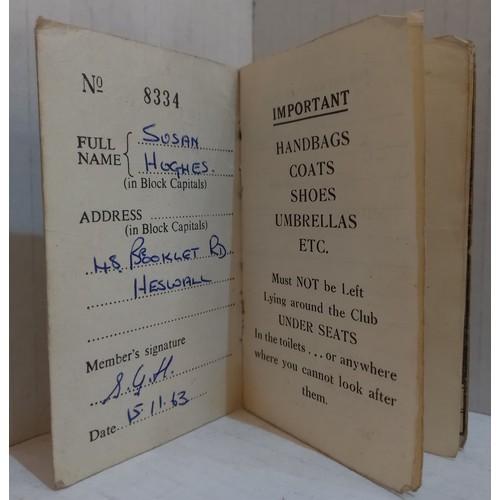 No 8334
FULL NAME
SUSAN
HUGHES.
(in Block Capitals)
ADDRESS
(in Block Capitals)
48 BOOKLET RD
HESWALL
Member's signature
S.G.H.
Date 15.11.63
IMPORTANT
HANDBAGS
COATS
SHOES
UMBRELLAS
ETC.
Must NOT be Left
Lying around the Club
UNDER SEATS
In the toilets . . . or anywhere
where you cannot look after
them.